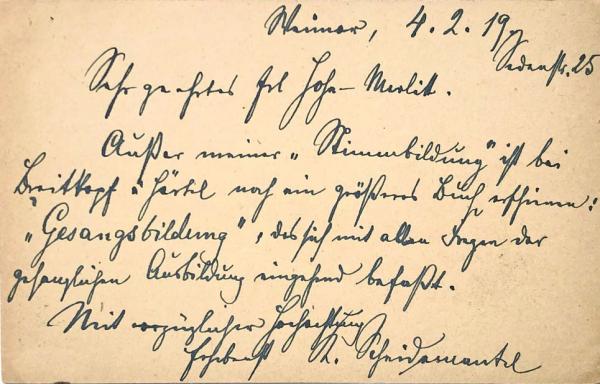 Weimar, 4. 2. 19
Sedanstr. 25
Sehr geehrtes Frl Hohn-Merlitt.
Außer meiner „Stimmbildung" ist bei
Breitkopf u Härtel noch ein größeres Buch erschienen:
„Gesangsbildung", das sich mit allen Fragen der
gesanglichen Ausbildung eingehend befaßt.
Mit vorzüglicher Hochachtung
Ergebenst K. Scheidemantel